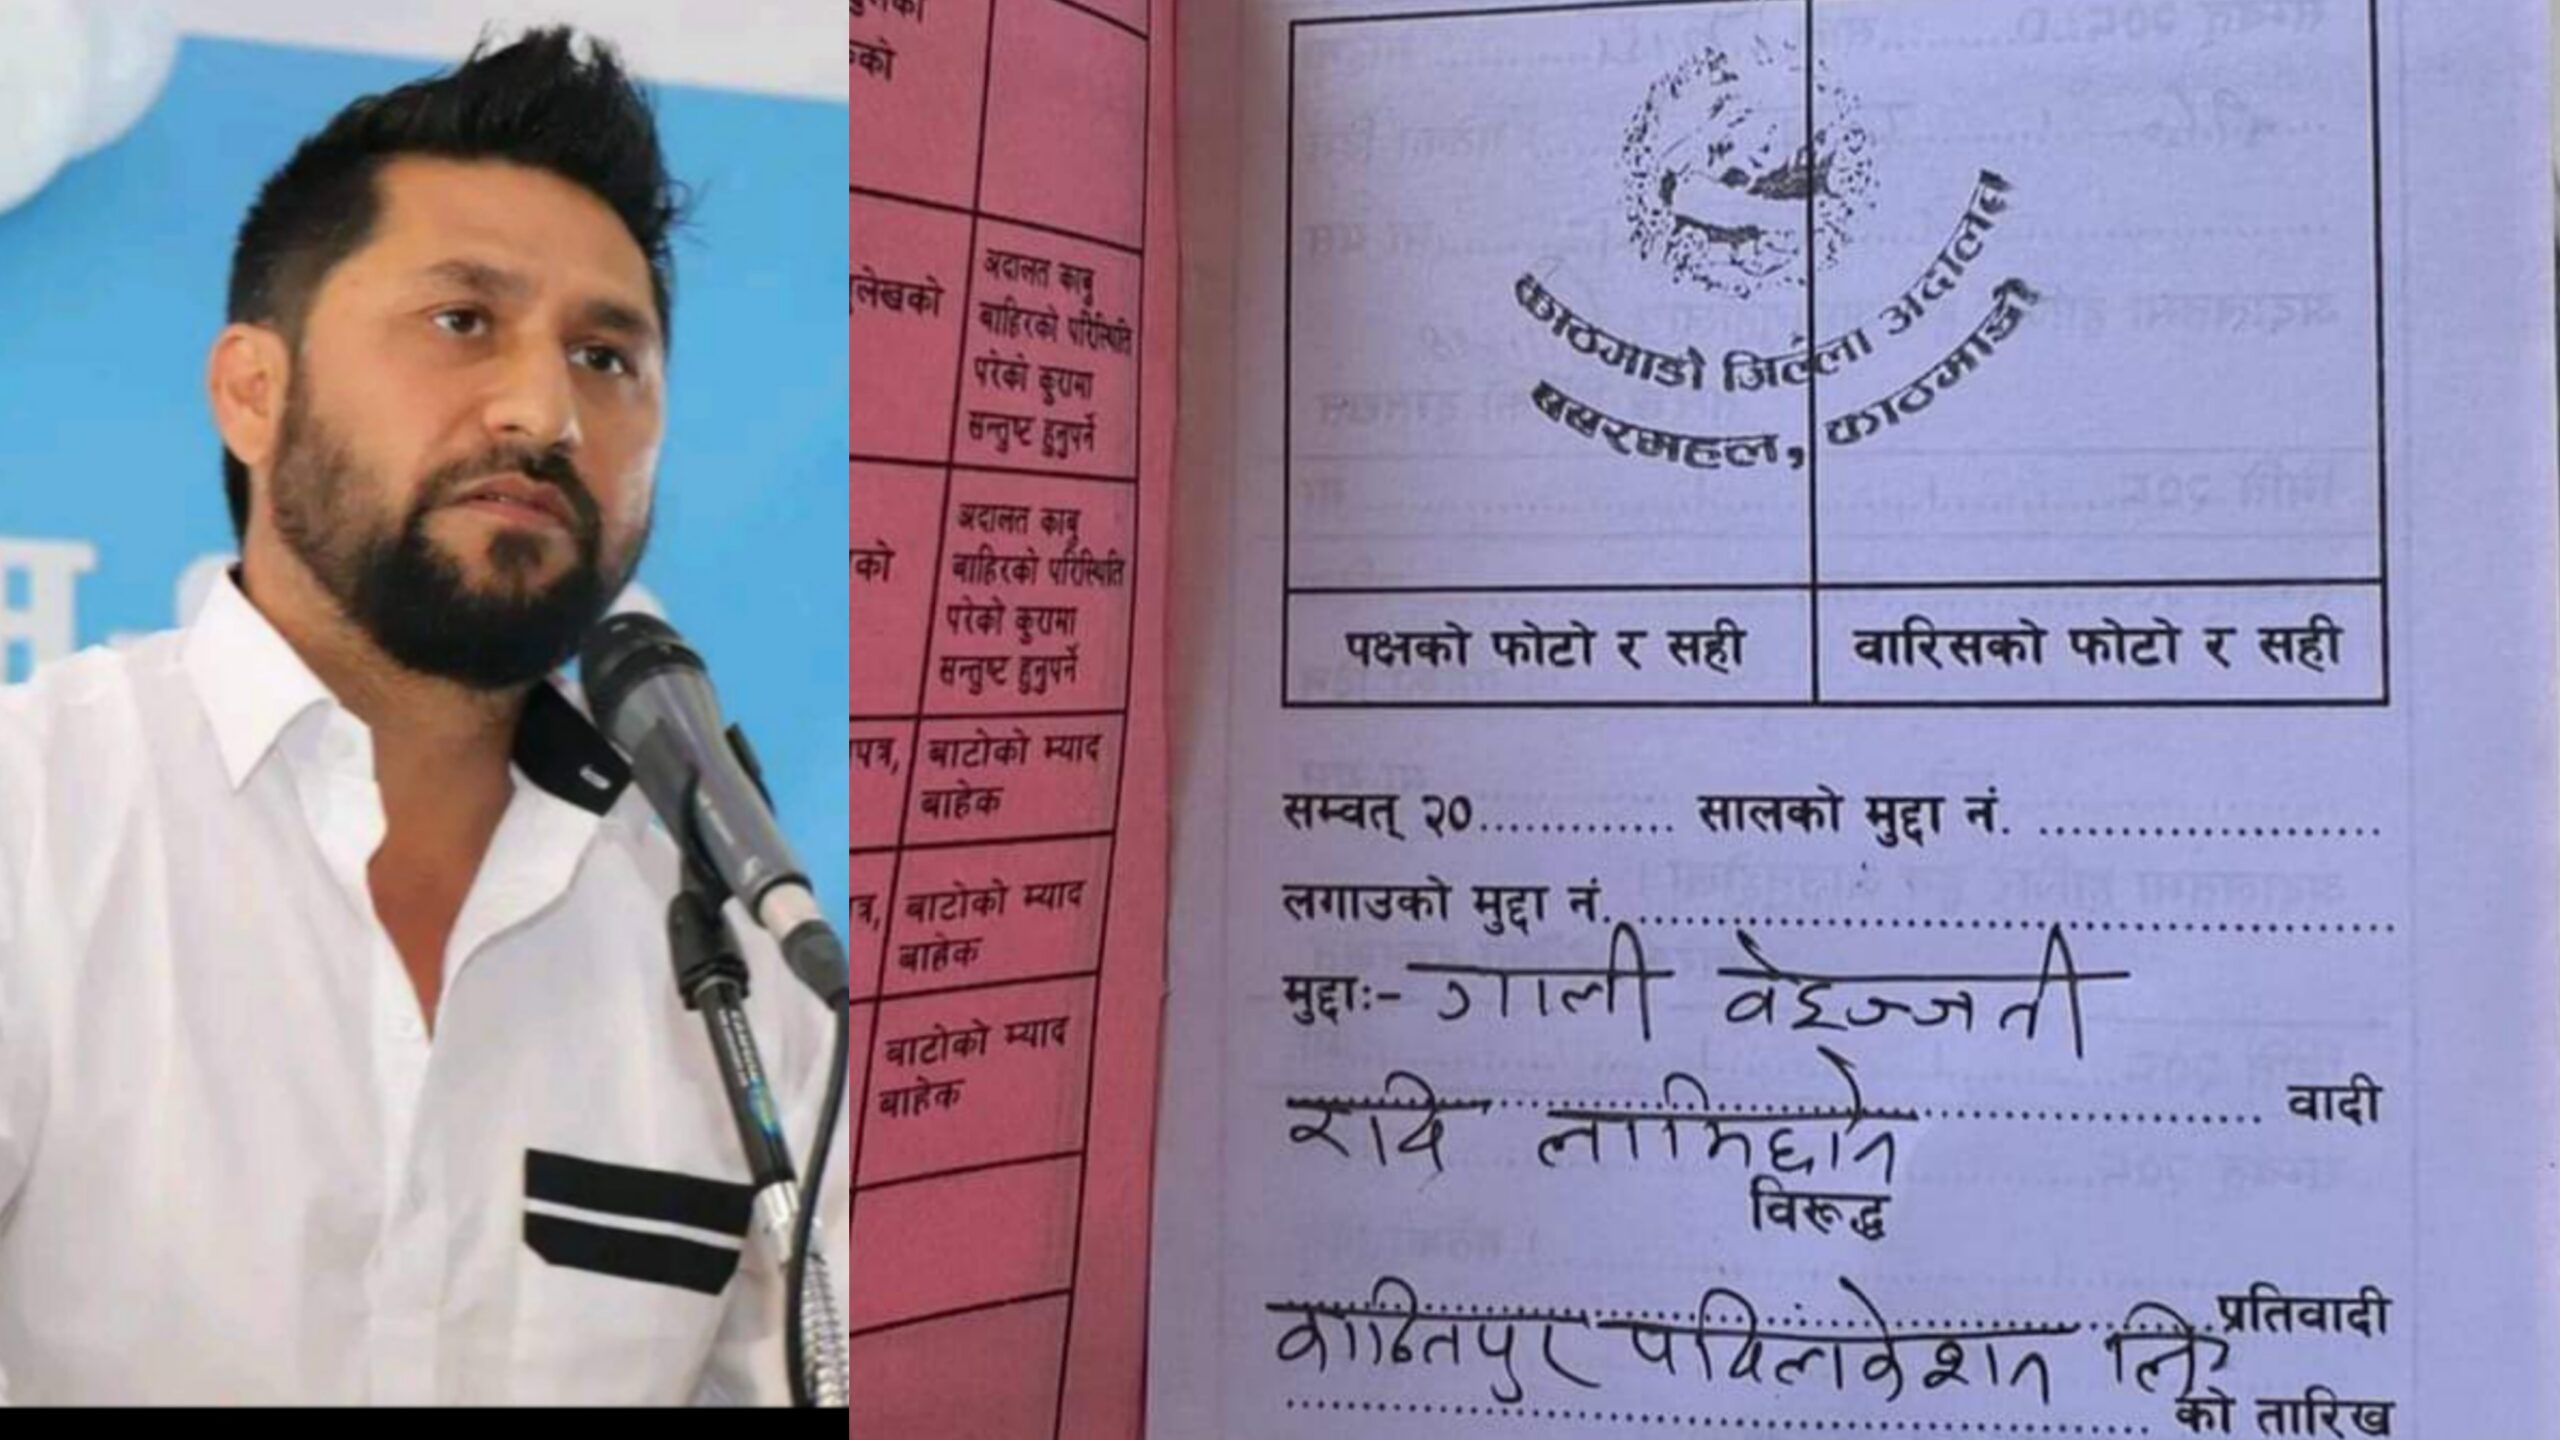 को
लेखको
अदालत काबु
बाहिरको परिस्थिति
परेको कुरामा
सन्तुष्ट हुनुपर्ने
को
अदालत काबु
बाहिरको परिस्थिति
परेको कुरामा
सन्तुष्ट हुनुपर्ने
पत्र,
बाटोको म्याद
बाहेक
त्र,
बाटोको म्याद
बाहेक
बाटोको म्याद
बाहेक
काठमाडौं जिल्ला अदालत
बबरमहल, काठमाडौं
पक्षको फोटो र सही
वारिसको फोटो र सही
सम्वत् २०............. सालको मुद्दा नं. ........................
लगाउको मुद्दा नं. ........................
मुद्दाः- गाली बेइज्जती
रवि लामिछाने वादी
विरूद्ध
कान्तिपुर पब्लिकेशन लि प्रतिवादी
को तारिख